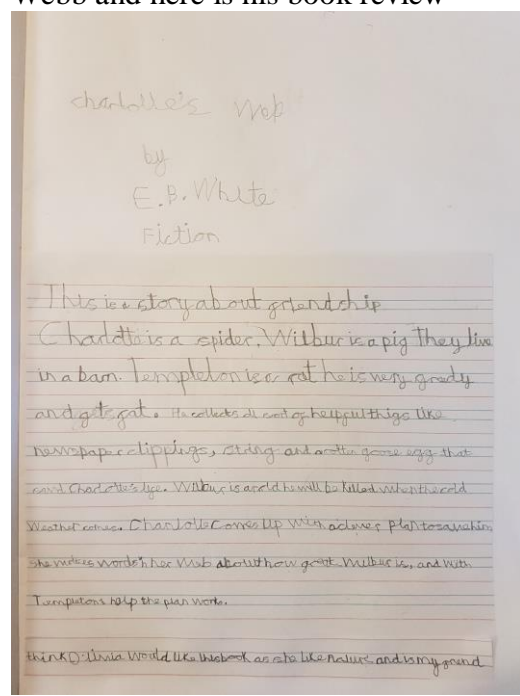 Webb and here is his book review
charlotte's Web
by
E.B. White
Fiction
This is a story about friendship
Charlotte is a spider. Wilbur is a pig They live
in a barn. Templeton is a rat he is very grady
and gets fat. He collects all sort of helpful things like
newspaper clippings, string and a rotten goose egg that
Charlotte's life. Wilbur is he will be killed when the cold
Weather comes. Charlotte comes up with a clever plan to save him
She makes words in her Web about how great Wilbur is, and with
Templetons help the plan works.
think would like this book as she like nature and is my friend